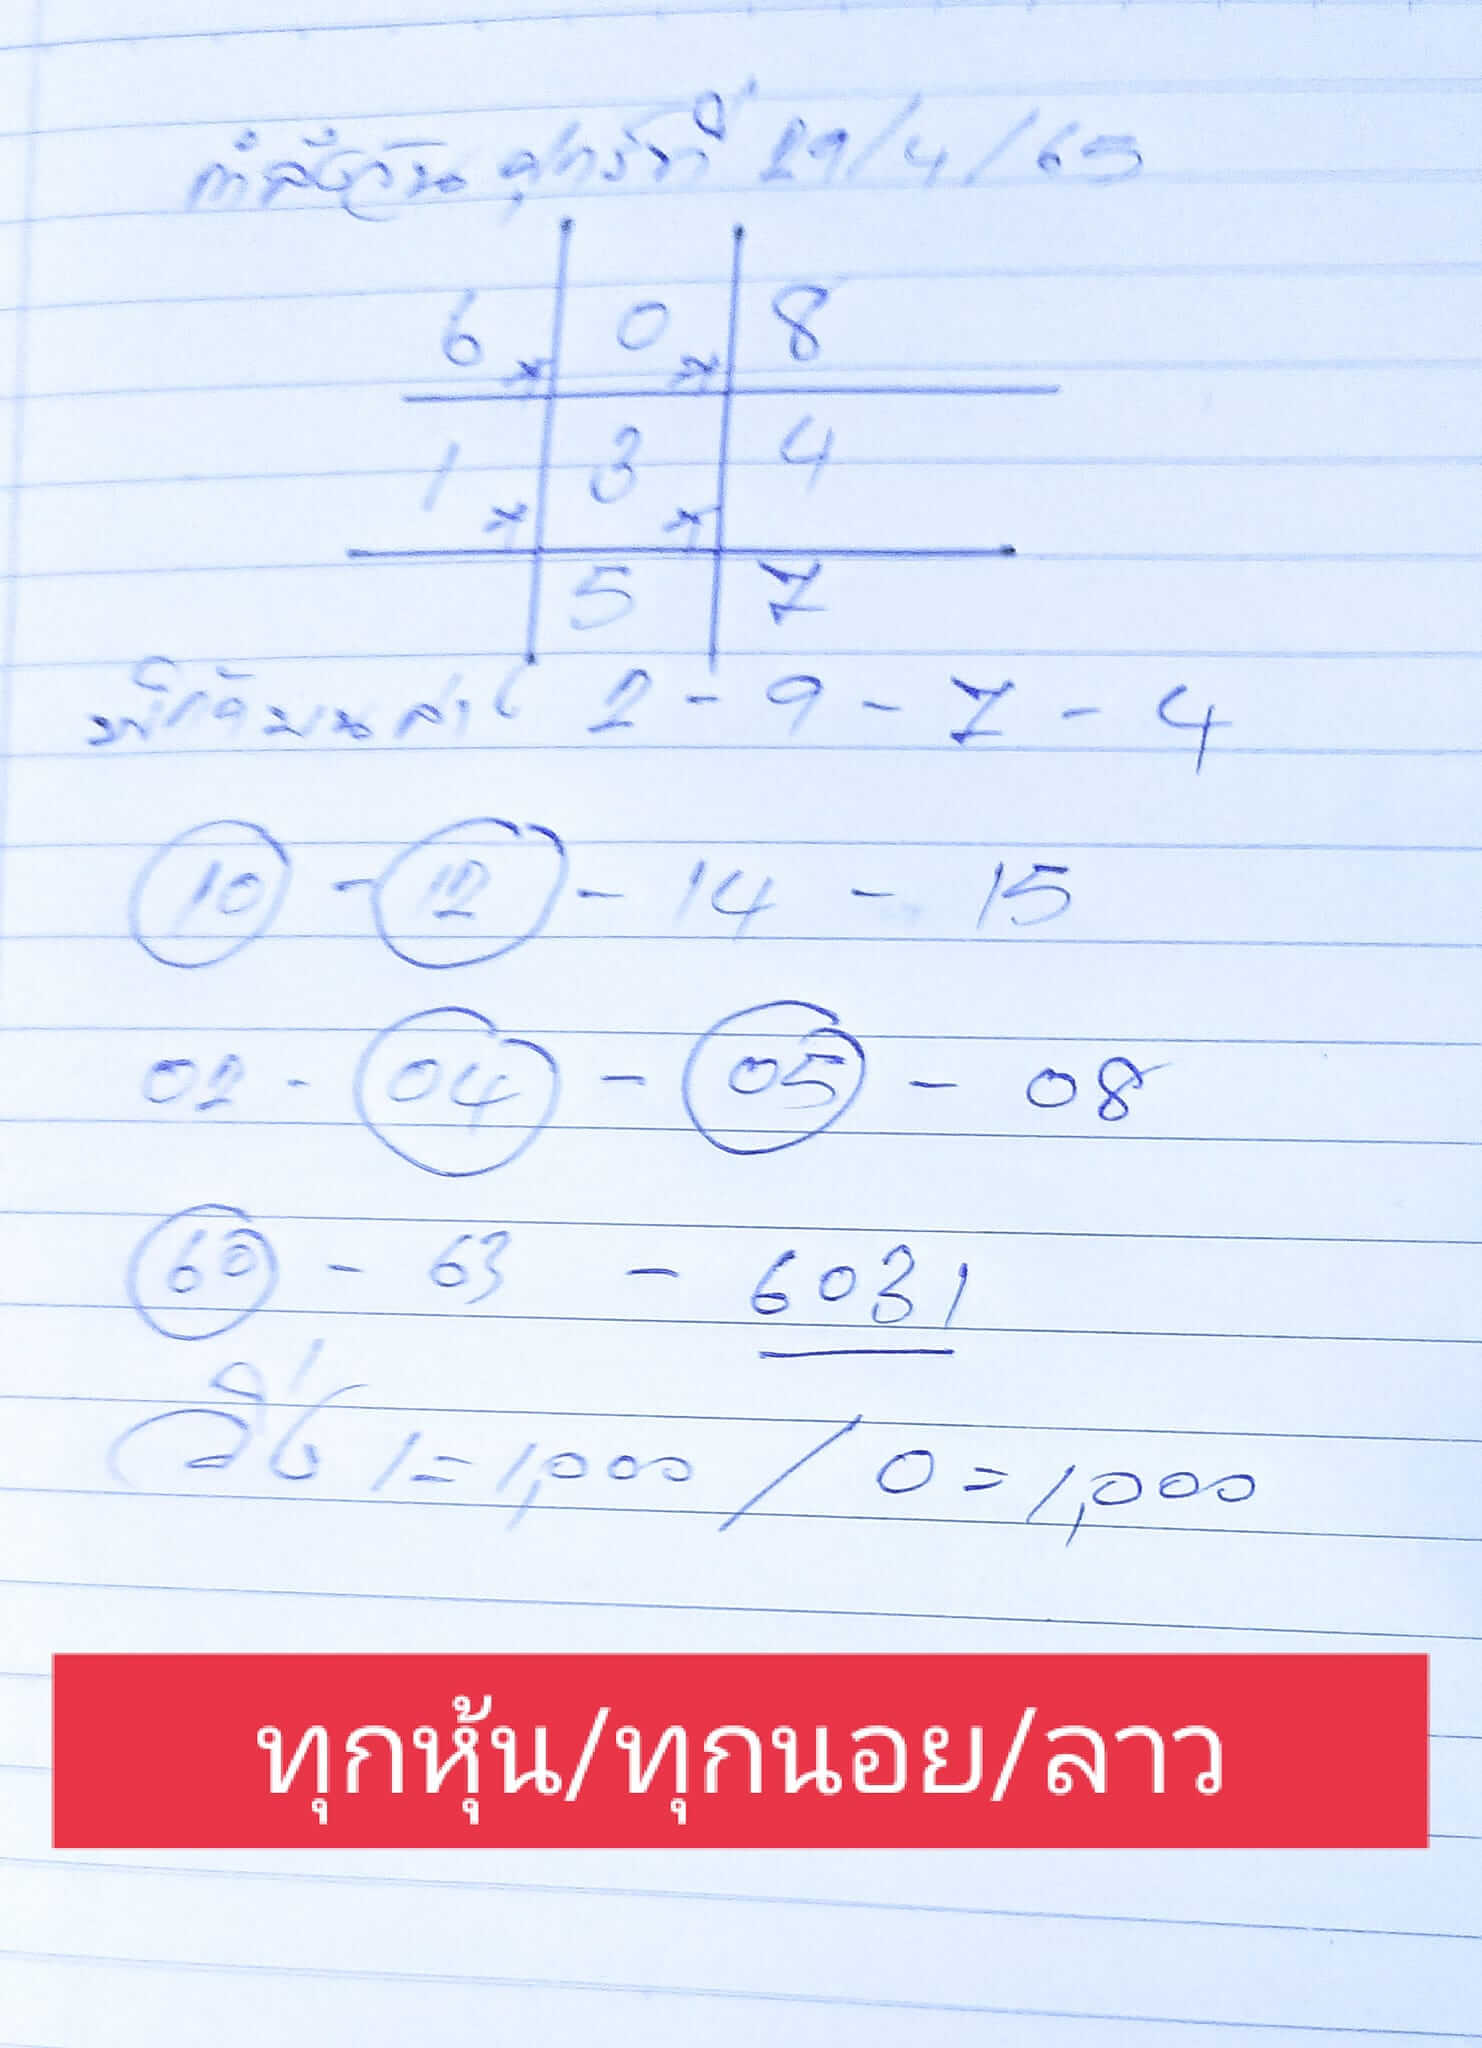 กำลังวันศุกร์ที่ 29/4/65
6 0 8
1 3 4
5 7
บน ล่าง 2 - 9 - 7 - 4
10 - 12 - 14 - 15
02 - 04 - 05 - 08
60 - 63 - 6031
วิ่ง 1 = 1,000 / 0 = 1,000
ทุกหุ้น/ทุกนอย/ลาว